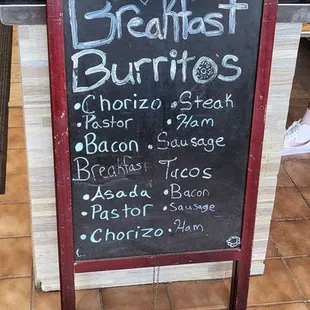 Breakfast
Burritos
• Chorizo • Steak
• Pastor • Ham
• Bacon • Sausage
Breakfast Tacos
• Asada • Bacon
• Pastor • Sausage
• Chorizo • Ham